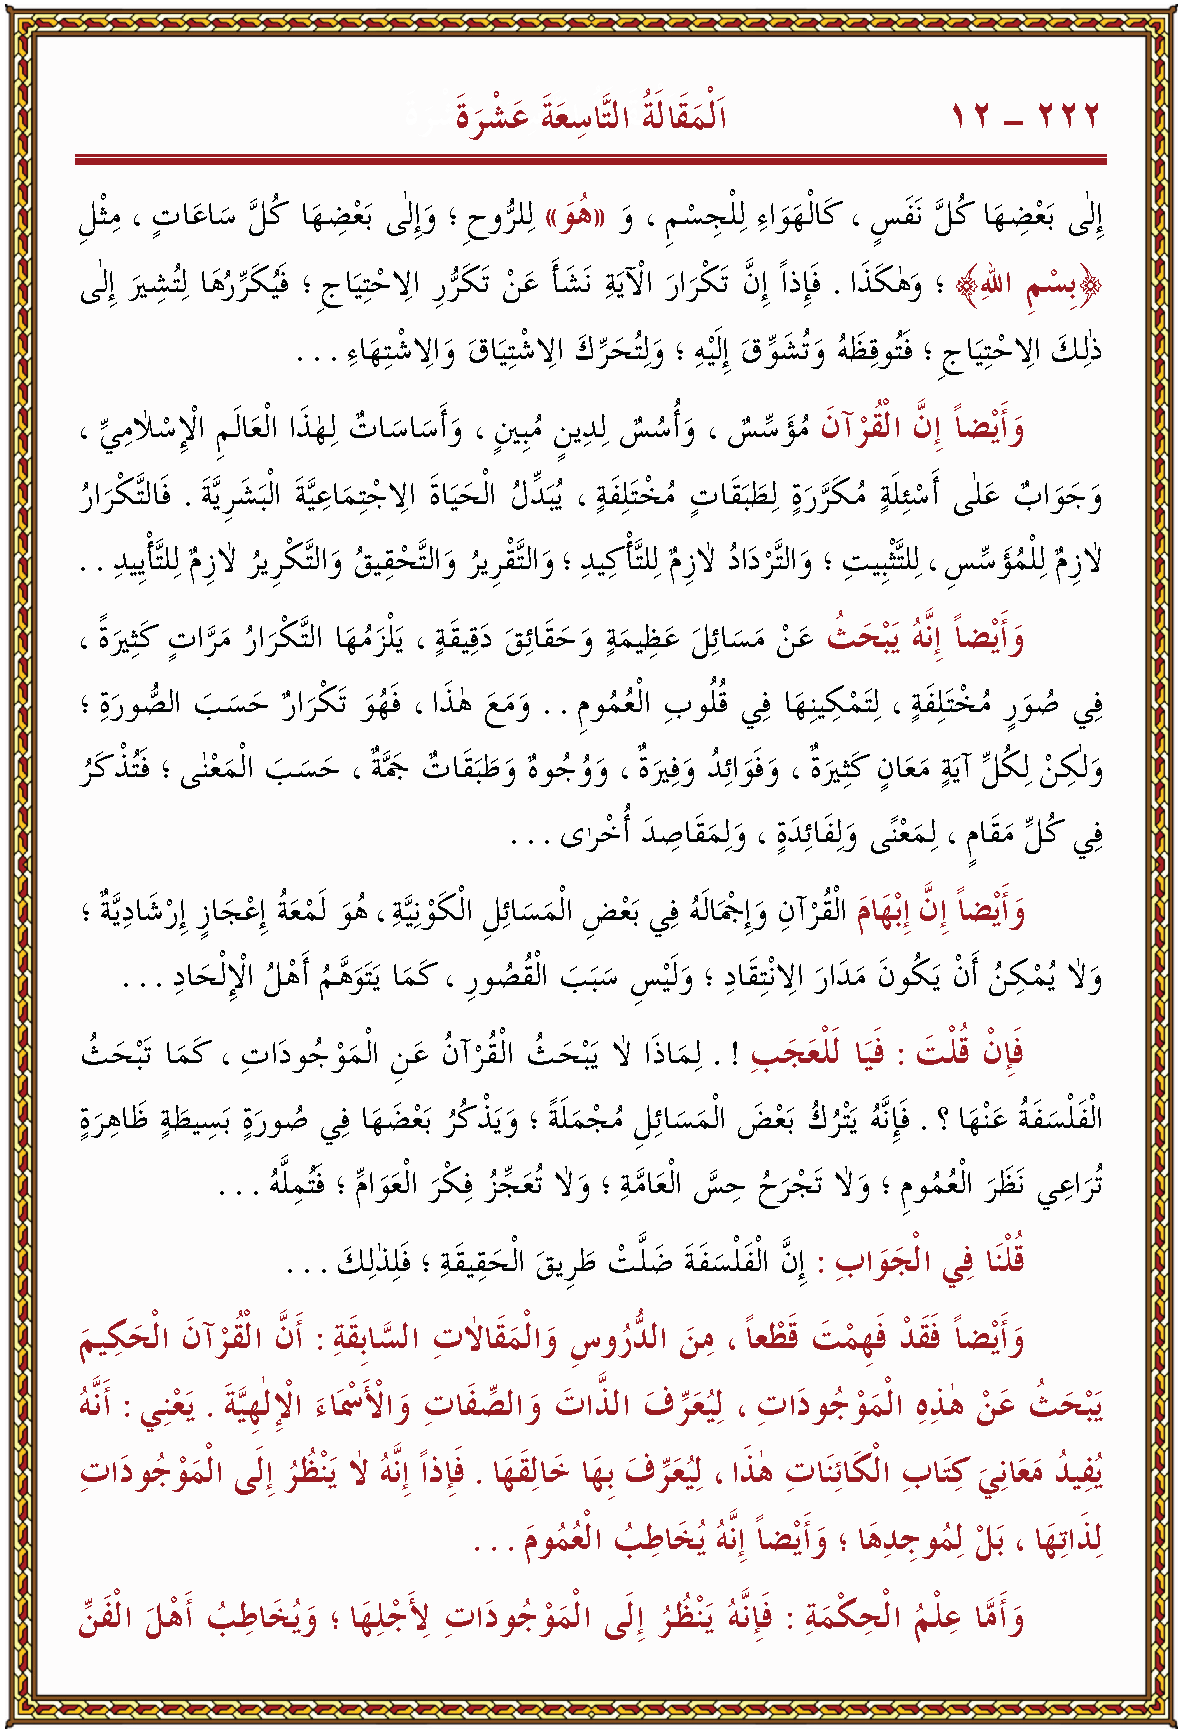 ٢٢٢ – ١٢ اَلْمَقَالَةُ التَّاسِعَةَ عَشْرَةَ
إِلٰى بَعْضِهَا كُلَّ نَفَسٍ ، كَالْهَوَاءِ لِلْجِسْمِ ، وَ «هُوَ» لِلرُّوحِ ؛ وَإِلٰى بَعْضِهَا كُلَّ سَاعَاتٍ ، مِثْلِ
﴿بِسْمِ اللهِ﴾ ؛ وَهٰكَذَا . فَإِذاً إِنَّ تَكْرَارَ الْاٰيَةِ نَشَأَ عَنْ تَكَرُّرِ الِاحْتِيَاجِ ؛ فَيُكَرِّرُهَا لِتُشِيرَ إِلٰى
ذٰلِكَ الِاحْتِيَاجِ ؛ فَتُوقِظَهُ وَتُشَوِّقَ إِلَيْهِ ؛ وَلِتُحَرِّكَ اشْتِيَاقَ وَالِاشْتِهَاءِ . . .
وَأَيْضاً إِنَّ الْقُرْآنَ مُؤَسِّسٌ ، وَأُسُسٌ لِدِينٍ مُبِينٍ ، وَأَسَاسَاتٌ لِهٰذَا الْعَالَمِ الْإِسْلَامِيِّ ،
وَجَوَابٌ عَلٰى أَسْئِلَةٍ مُكَرَّرَةٍ لِطَبَقَاتٍ مُخْتَلِفَةٍ ، يُبَدِّلُ الْحَيَاةَ الِاجْتِمَاعِيَّةَ الْبَشَرِيَّةَ . فَالتَّكْرَارُ
لَازِمٌ لِلْمُؤَسِّسِ ، لِلتَّثْبِيتِ ؛ وَالتَّرْدَادُ لَازِمٌ لِلتَّأْكِيدِ ؛ وَالتَّقْرِيرُ وَالتَّحْقِيقُ وَالتَّكْرِيرُ لَازِمٌ لِلتَّأْيِيدِ . .
وَأَيْضاً إِنَّهُ يَبْحَثُ عَنْ مَسَائِلَ عَظِيمَةٍ وَحَقَائِقَ دَقِيقَةٍ ، يَلْزَمُهَا التَّكْرَارُ مَرَّاتٍ كَثِيرَةً ،
فِي صُوَرٍ مُخْتَلِفَةٍ ، لِتَمْكِينِهَا فِي قُلُوبِ الْعُمُومِ . . وَمَعَ هٰذَا ، فَهُوَ تَكْرَارٌ حَسَبَ الصُّورَةِ ؛
وَلٰكِنْ لِكُلِّ آيَةٍ مَعَانٍ كَثِيرَةٌ ، وَفَوَائِدُ وَفِيرَةٌ ، وَوُجُوهٌ وَطَبَقَاتٌ جَمَّةٌ ، حَسَبَ الْمَعْنٰى ؛ فَتُذْكَرُ
فِي كُلِّ مَقَامٍ ، لِمَعْنًى وَلِفَائِدَةٍ ، وَلِمَقَاصِدَ أُخْرٰى . . .
وَأَيْضاً إِنَّ إِبْهَامَ الْقُرْآنِ وَإِجْمَالَهُ فِي بَعْضِ الْمَسَائِلِ الْكَوْنِيَّةِ ، هُوَ لَمْعَةُ إِعْجَازٍ إِرْشَادِيَّةٌ ؛
وَلَا يُمْكِنُ أَنْ يَكُونَ مَدَارَ الِانْتِقَادِ ؛ وَلَيْسِ سَبَبَ الْقُصُورِ ، كَمَا يَتَوَهَّمُ أَهْلُ الْإِلْحَادِ . . .
فَإِنْ قُلْتَ : فَيَا لَلْعَجَبِ ! . لِمَاذَا لَا يَبْحَثُ الْقُرْآنُ عَنِ الْمَوْجُودَاتِ ، كَمَا تَبْحَثُ
الْفَلْسَفَةُ عَنْهَا ؟ . فَإِنَّهُ يَتْرُكُ بَعْضَ الْمَسَائِلِ مُجْمَلَةً ؛ وَيَذْكُرُ بَعْضَهَا فِي صُورَةٍ بَسِيطَةٍ ظَاهِرَةٍ
تُرَاعِي نَظَرَ الْعُمُومِ ؛ وَلَا تَجْرَحُ حِسَّ الْعَامَّةِ ؛ وَلَا تُعَجِّزُ فِكْرَ الْعَوَامِّ ؛ فَتُمِلَّهُ . . .
قُلْنَا فِي الْجَوَابِ : إِنَّ الْفَلْسَفَةَ ضَلَّتْ طَرِيقَ الْحَقِيقَةِ ؛ فَلِذٰلِكَ . . .
وَأَيْضاً فَقَدْ فَهِمْتَ قَطْعاً ، مِنَ الدُّرُوسِ وَالْمَقَالَاتِ السَّابِقَةِ : أَنَّ الْقُرْآنَ الْحَكِيمَ
يَبْحَثُ عَنْ هٰذِهِ الْمَوْجُودَاتِ ، لِيُعَرِّفَ الذَّاتَ وَالصِّفَاتِ وَالْأَسْمَاءَ الْإِلٰهِيَّةَ . يَعْنِي : أَنَّهُ
يُفِيدُ مَعَانِيَ كِتَابِ الْكَائِنَاتِ هٰذَا ، لِيُعَرِّفَ بِهَا خَالِقَهَا . فَإِذاً إِنَّهُ لَا يَنْظُرُ إِلَى الْمَوْجُودَاتِ
لِذَاتِهَا ، بَلْ لِمُوجِدِهَا ؛ وَأَيْضاً إِنَّهُ يُخَاطِبُ الْعُمُومَ . . .
وَأَمَّا عِلْمُ الْحِكْمَةِ : فَإِنَّهُ يَنْظُرُ إِلَى الْمَوْجُودَاتِ لِأَجْلِهَا ؛ وَيُخَاطِبُ أَهْلَ الْفَنِّ